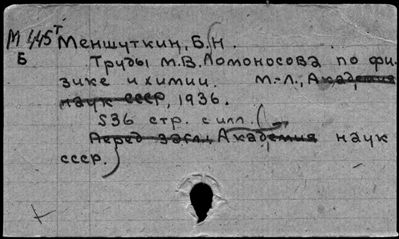 М445т Меншуткин, Б.Н.
Б Труды М.В. Ломоносова по фи-
зике и химии. М.-Л., Академия
наук СССР, 1936.
536 стр. с илл. (
Перед загл. Академия наук
СССР.)